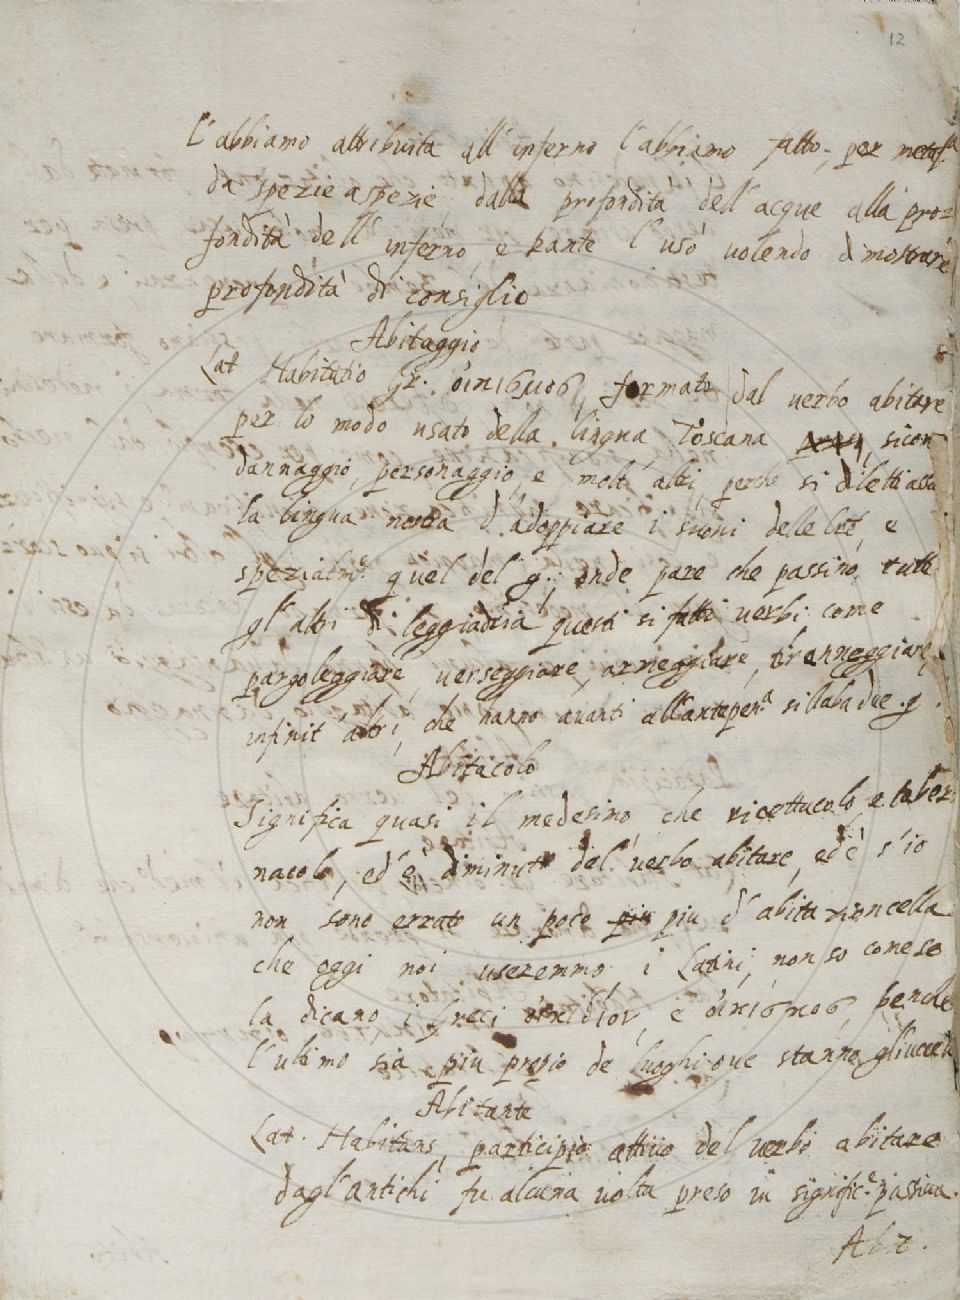 12
L'abbiamo attribuita all'inferno l'abbiamo fatto, per metaf.ª
da spezie a spezie, dalla profondità dell'acque alla pro=
fondità dell'inferno, e Dante l'usò volendo dimostrare
profondità di consiglio
Abitaggio
Lat Habitatio Gr. οἰκισμος, formato dal verbo abitare
per lo modo usato della lingua Toscana, sicon
dannaggio, personaggio, e molt'altri, perchè si diletti assai
la lingua nostra d'adoppiare i suoni delle lrẽ, e
spezialm.ᵉ quel del g, onde pare che passino tutti
gl'altri di leggiadria questi si fatti verbi come
pargoleggiare, verseggiare, armeggiare, tirenneggiare,
infinit'altri, che hanno avanti all'antepen.ª sillaba due g.
Abitacolo
Significa quasi il medesimo che ricettacolo, e taber
nacolo, ed'è diminut.º del verbo abitare, ed'è s'io
non sono errato un poco piu piu d'abitazioncella
che oggi noi useremmo, i Latini, non so come se
la dicano, i Greci οἰκιδιον, e οἰκισκος, benche
l'ultimo sia piu propio de' luoghi ove stanno gl'uccelli
Abitante
Lat. Habitans, participio attivo del verbo abitare
dagl'antichi fu alcuna volta preso in signific.ᵉ passiva.
Abit.